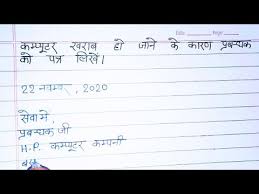 Date
Page
कम्प्यूटर खराब हो जाने के कारण प्रबन्धक
को पत्र लिखें।
22 नवम्बर, 2020
सेवा में,
प्रबन्धक जी
H.P. कम्प्यूटर कम्पनी